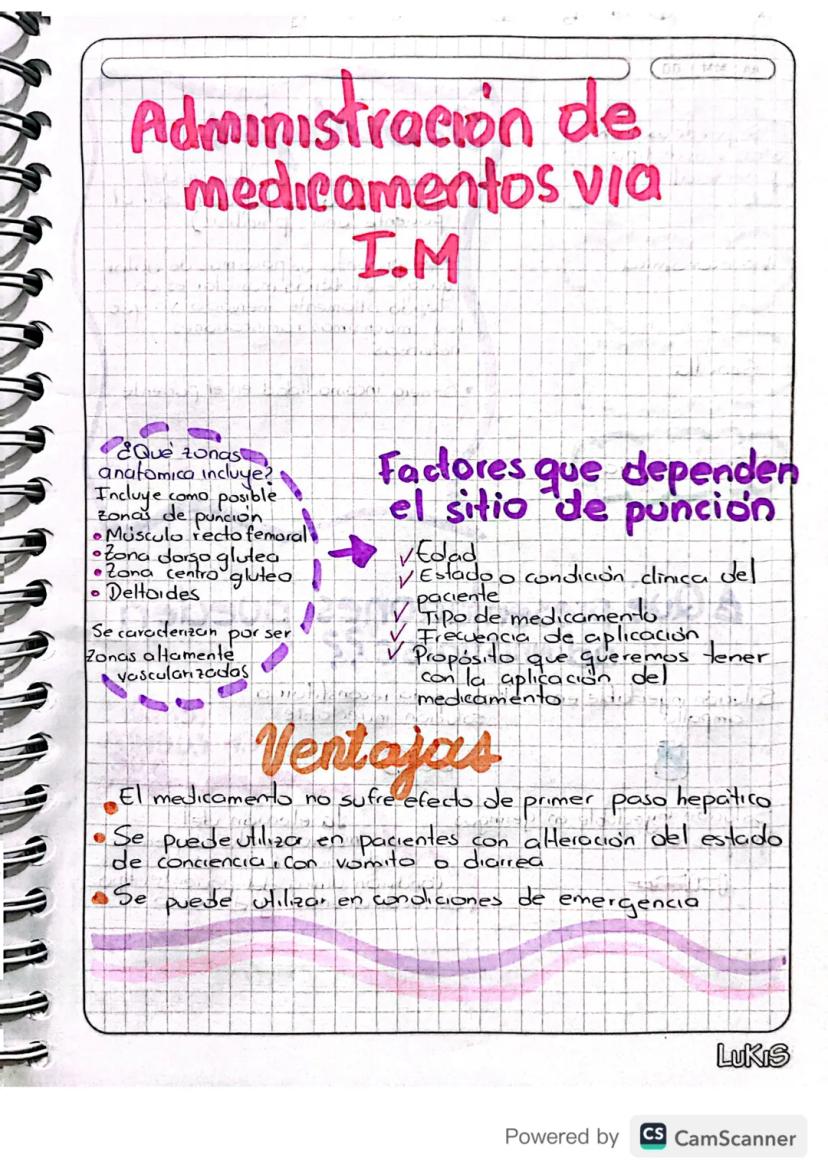 Administración de
medicamentos via
I.M
¿Qué zonas
anatomica incluye?
Incluye como posible
zonas de punción
• Músculo recto femoral
• Zona dorso glutea
• Zona centro gluteo
• Deltoides
Se caracterizan por ser
zonas altamente
vascularizadas
Factores que dependen
el sitio de punción
✓ Edad
✓ Estado o condición clinica del
paciente
✓ Tipo de medicamento
✓ Frecuencia de aplicación
✓ Propósito que queremos tener
con la aplicación del
medicamento
Ventajas
• El medicamento no sufre efecto de primer paso hepático
• Se puede utilizar en pacientes con alteración del estado
de conciencia, con vomito o diarrea
• Se puede utilizar en condiciones de emergencia
LuKiS
Powered by CS CamScanner